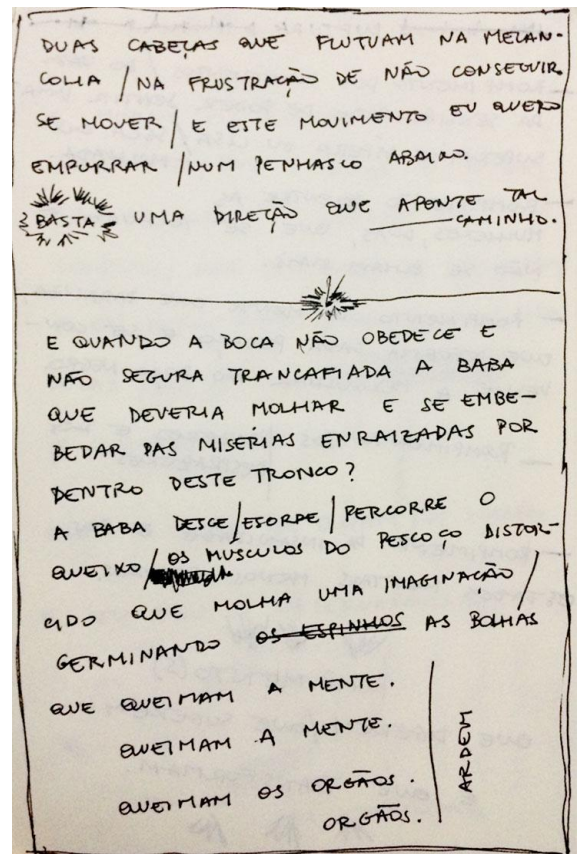 DUAS CABEÇAS QUE FLUTUAM NA MELAN-
COLIA / NA FRUSTRAÇÃO DE NÃO CONSEGUIR
SE MOVER / E ESTE MOVIMENTO EU QUERO
EMPURRAR / NUM PENHASCO ABAIXO.
BASTA UMA DIREÇÃO QUE APONTE TAL
CAMINHO.
E QUANDO A BOCA NÃO OBEDECE E
NÃO SEGURA TRANCAFIADA A BABA
QUE DEVERIA MOLHAR E SE EMBE-
BEDAR DAS MISERIAS ENRAIZADAS POR
DENTRO DESTE TRONCO?
A BABA DESCE / ESCORRE / PERCORRE O
QUEIXO / OS MUSCULOS DO PESCOÇO DISTOR-
CIDO QUE MOLHA UMA IMAGINAÇÃO /
GERMINANDO OS ESPINHOS AS BOLHAS
QUE QUEIMAM A MENTE.
QUEIMAM A MENTE.
QUEIMAM OS ORGÃOS.
ORGÃOS.
ARDEM